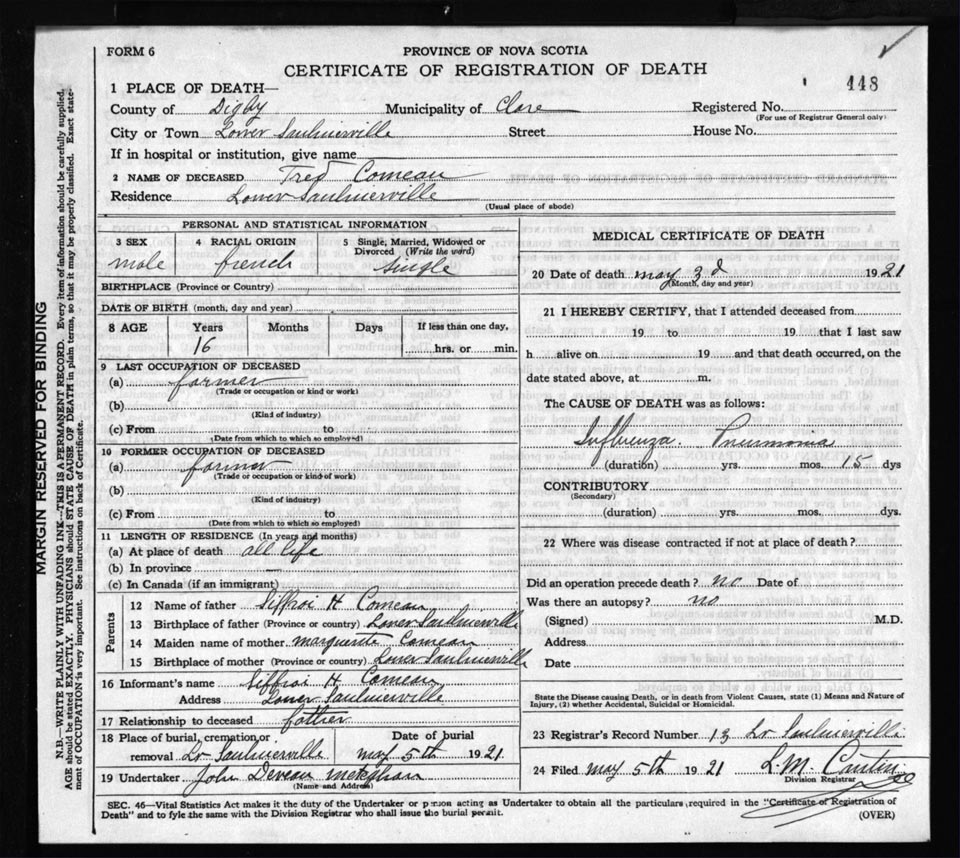 FORM 6
PROVINCE OF NOVA SCOTIA
CERTIFICATE OF REGISTRATION OF DEATH
448
1 PLACE OF DEATH—
County of Digby Municipality of Clare Registered No.
(For use of Registrar General only)
City or Town Lower Saulnierville Street House No.
If in hospital or institution, give name
2 NAME OF DECEASED Fred Comeau
Residence Lower Saulnierville
(Usual place of abode)
PERSONAL AND STATISTICAL INFORMATION
3 SEX 4 RACIAL ORIGIN 5 Single, Married, Widowed or Divorced (Write the word)
male french single
BIRTHPLACE (Province or Country)
DATE OF BIRTH (month, day and year)
8 AGE Years Months Days If less than one day,
16 hrs. or min.
9 LAST OCCUPATION OF DECEASED
(a) farmer
(Trade or occupation or kind of work)
(b)
(Kind of industry)
(c) From to
(Date from which to which so employed)
10 FORMER OCCUPATION OF DECEASED
(a) farmer
(Trade or occupation or kind of work)
(b)
(Kind of industry)
(c) From to
(Date from which to which so employed)
11 LENGTH OF RESIDENCE (In years and months)
(a) At place of death all life
(b) In province —
(c) In Canada (if an immigrant)
Parents
12 Name of father Siffroi H Comeau
13 Birthplace of father (Province or country) Lower Saulnierville
14 Maiden name of mother marguerite Comeau
15 Birthplace of mother (Province or country) Lower Saulnierville
16 Informant's name Siffroi H Comeau
Address Lower Saulnierville
17 Relationship to deceased father
18 Place of burial, cremation or removal Lr Saulnierville Date of burial may 5th 1921
19 Undertaker John Deveau meteghan
(Name and Address)
MEDICAL CERTIFICATE OF DEATH
20 Date of death may 3d 1921
(Month, day and year)
21 I HEREBY CERTIFY, that I attended deceased from
19 to 19 that I last saw
h alive on 19 and that death occurred, on the
date stated above, at m.
The CAUSE OF DEATH was as follows:
Influenza. Pneumonia
(duration) yrs. mos. 15 dys
CONTRIBUTORY
(Secondary)
(duration) yrs. mos. dys.
22 Where was disease contracted if not at place of death?
Did an operation precede death? no Date of
Was there an autopsy? no
(Signed) M.D.
Address
Date
State the Disease causing Death, or in death from Violent Causes, state (1) Means and Nature of
Injury, (2) whether Accidental, Suicidal or Homicidal.
23 Registrar's Record Number 13 Lr Saulnierville
24 Filed may 5th 1921 L.M.
Division Registrar
SEC. 46—Vital Statistics Act makes it the duty of the Undertaker or person acting as Undertaker to obtain all the particulars required in the "Certificate of Registration of
Death" and to fyle the same with the Division Registrar who shall issue the burial permit.
(OVER)
MARGIN RESERVED FOR BINDING
N.B.—WRITE PLAINLY WITH UNFADING INK—THIS IS A PERMANENT RECORD. Every item of information should be carefully supplied,
AGE should be stated EXACTLY. PHYSICIANS should STATE CAUSE OF DEATH in plain terms, so that it may be properly classified. Exact state-
ment of OCCUPATION is very important. See instructions on back of Certificate.